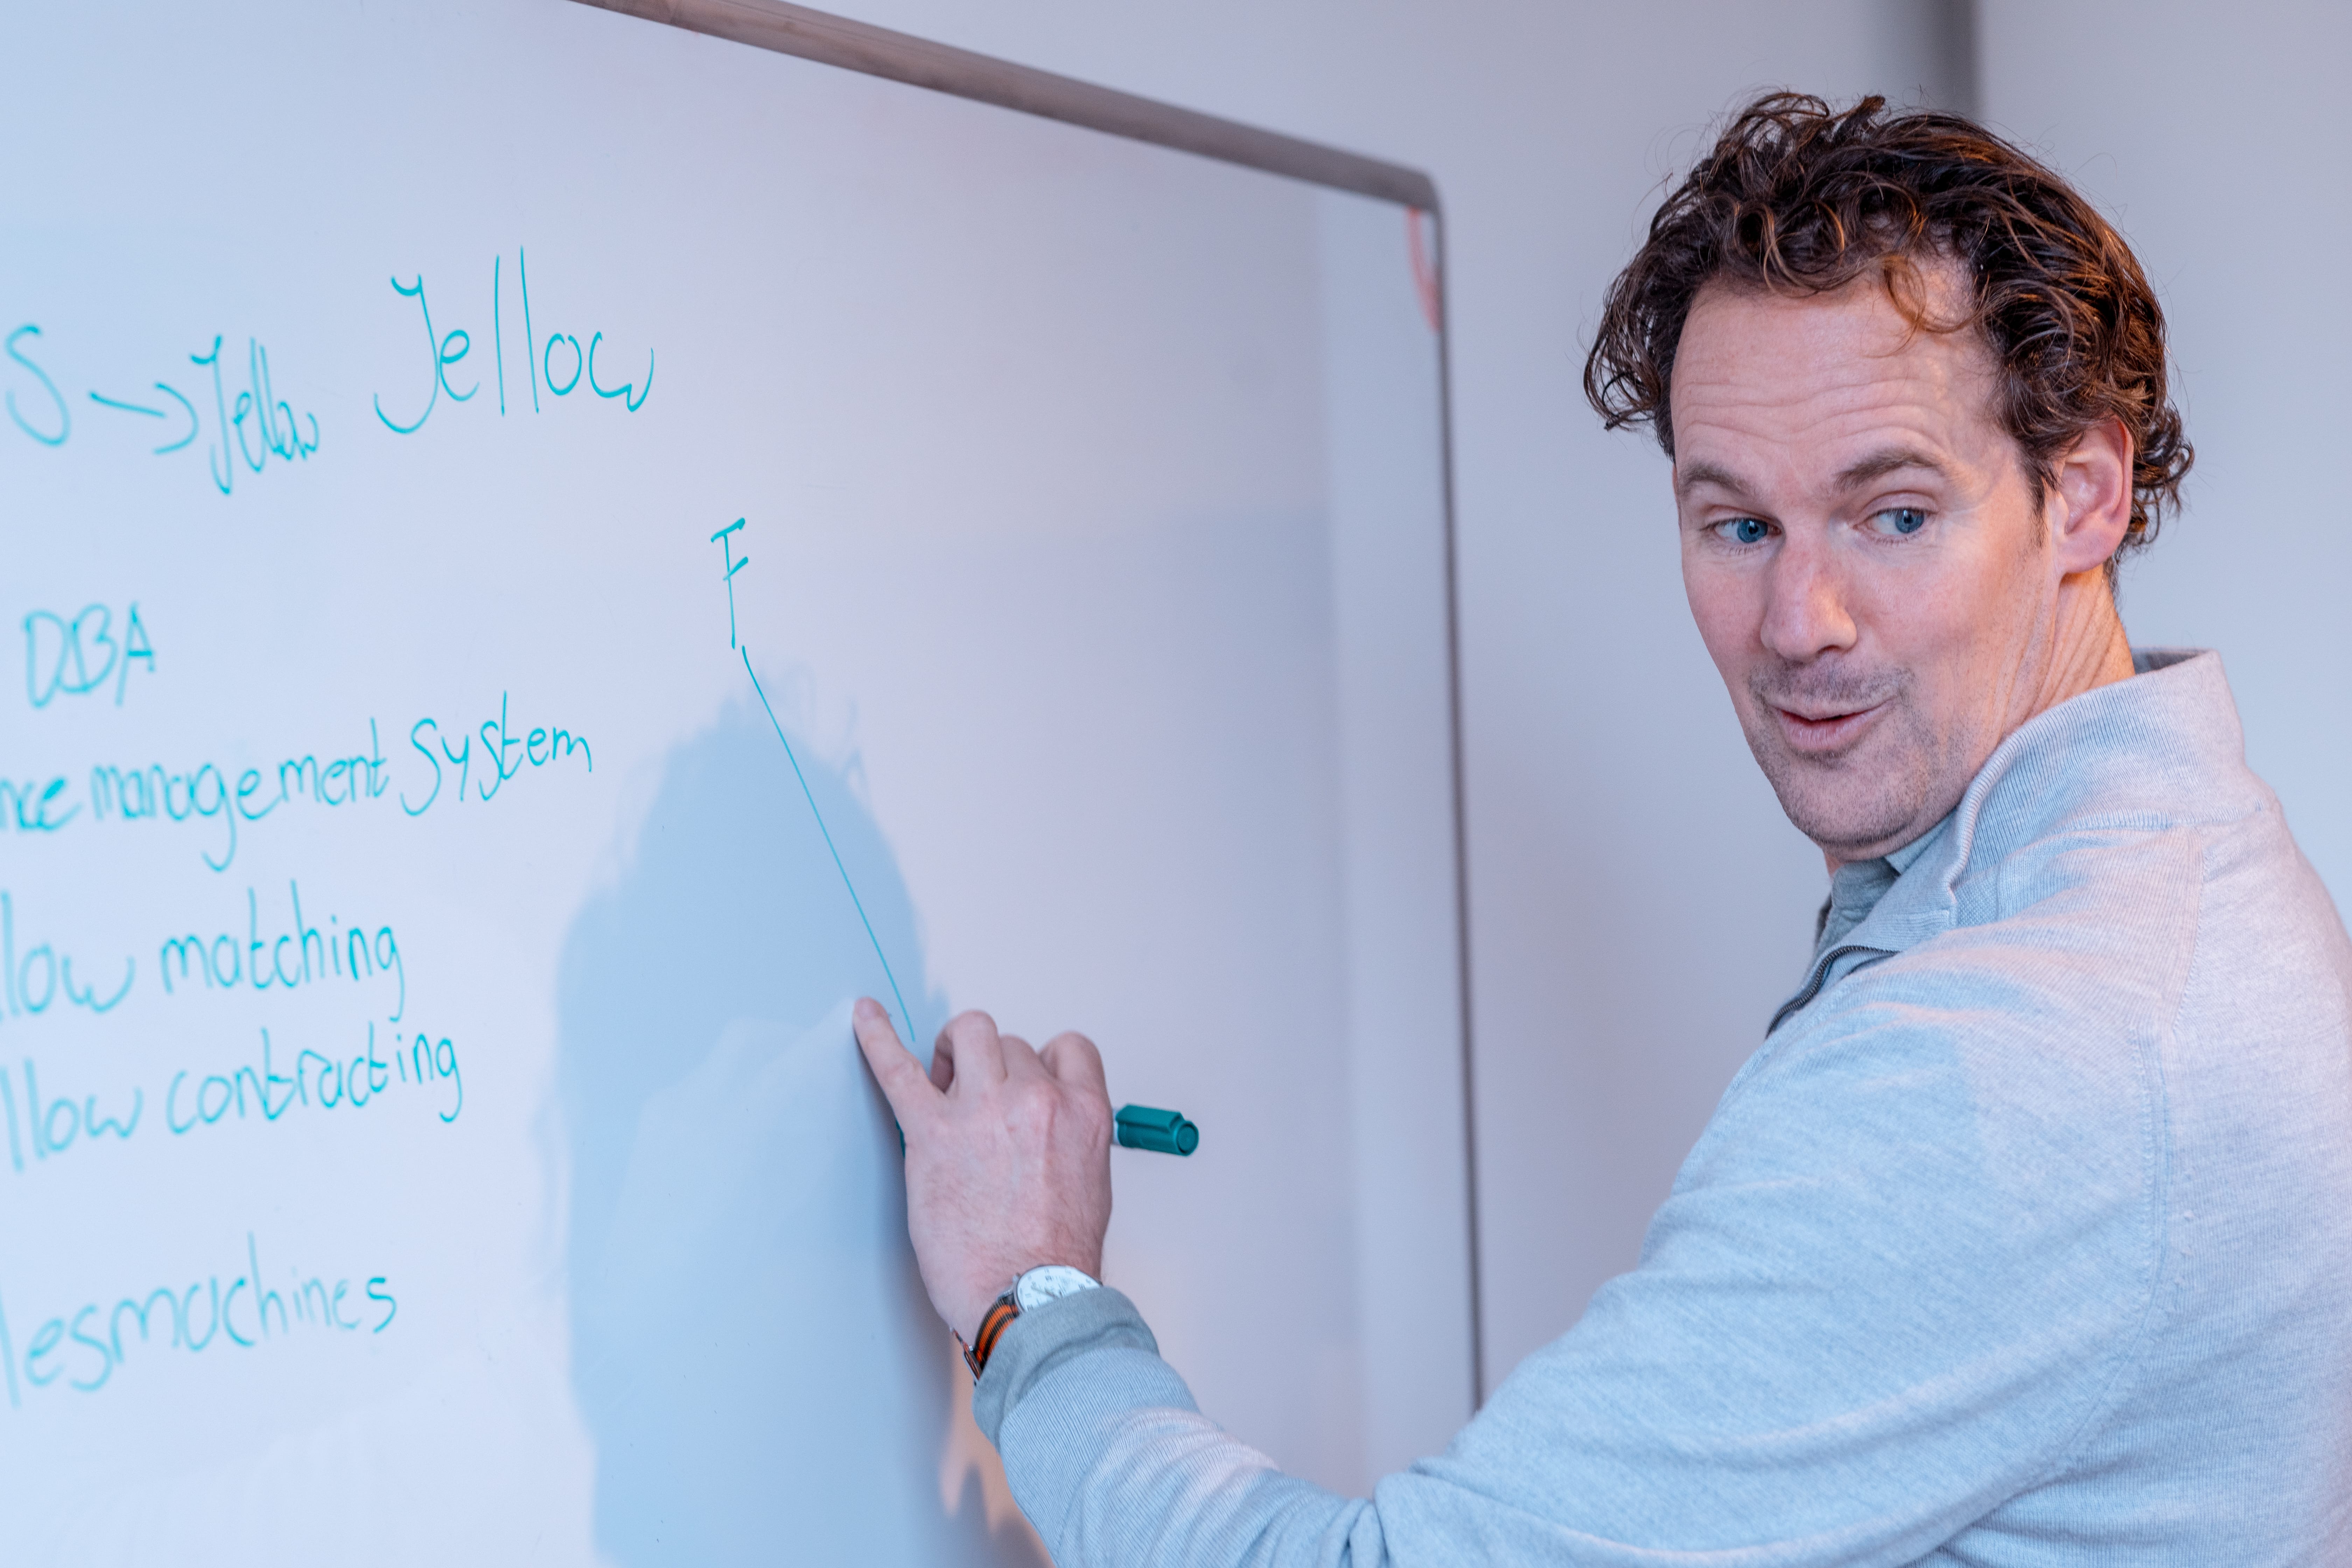 S → Jellow Jellow
F
DBA
nce management System
llow matching
llow contracting
lesmachines